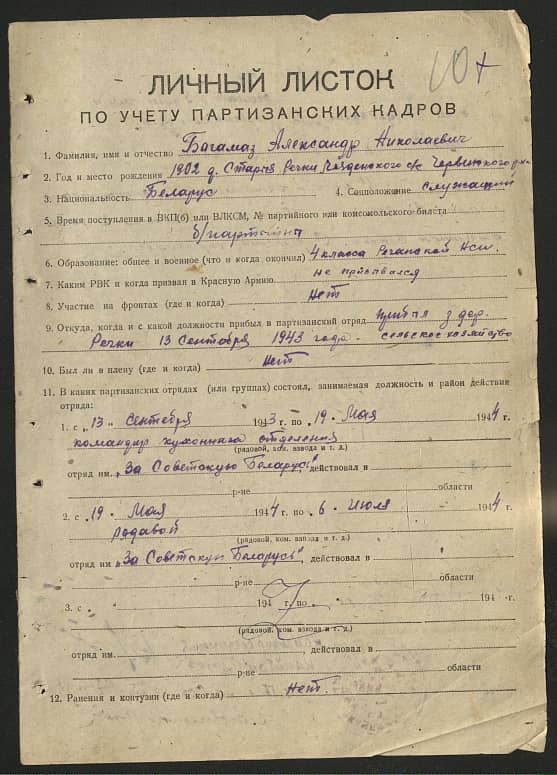 10
ЛИЧНЫЙ ЛИСТОК
ПО УЧЕТУ ПАРТИЗАНСКИХ КАДРОВ
1. Фамилия, имя и отчество Багамаз Александр Николаевич
2. Год и место рождения 1902 д. Старыя Речки с/с Червинского
3. Национальность Беларус 4. Соцположение служащий
5. Время поступления в ВКП(б) или ВЛКСМ, № партийного или комсомольского билета
б/партыйны
6. Образование: общее и военное (что и когда окончил) 4 класса Речанской
7. Каким РВК и когда призван в Красную Армию не призвался
8. Участие на фронтах (где и когда) Нет
9. Откуда, когда и с какой должности прибыл в партизанский отряд прибыл з дер.
Речки 13 Сентября 1943 года. сельское хозяйство
10. Был ли в плену (где и когда) Нет
11. В каких партизанских отрядах (или группах) состоял, занимаемая должность и район действия
отряда:
1. с „13„ Сентября 1943 г. по „19„ Мая 1944 г.
командир кухонного отделения
(рядовой, ком. взвода и т. д.)
отряд им. „За Советскую Беларусь" действовал в
р-не области
2. с „19„ Мая 1944 г. по „6„ Июля 1944 г.
радавой
(рядовой, ком. взвода и т. д.)
отряд им „За Советскую Беларусь" действовал в
р-не области
3. с „ „ 194 г. по „ „ 194 г.
(рядовой, ком. взвода и т. д.)
отряд им. действовал в
р-не области
12. Ранения и контузии (где и когда) Нет.